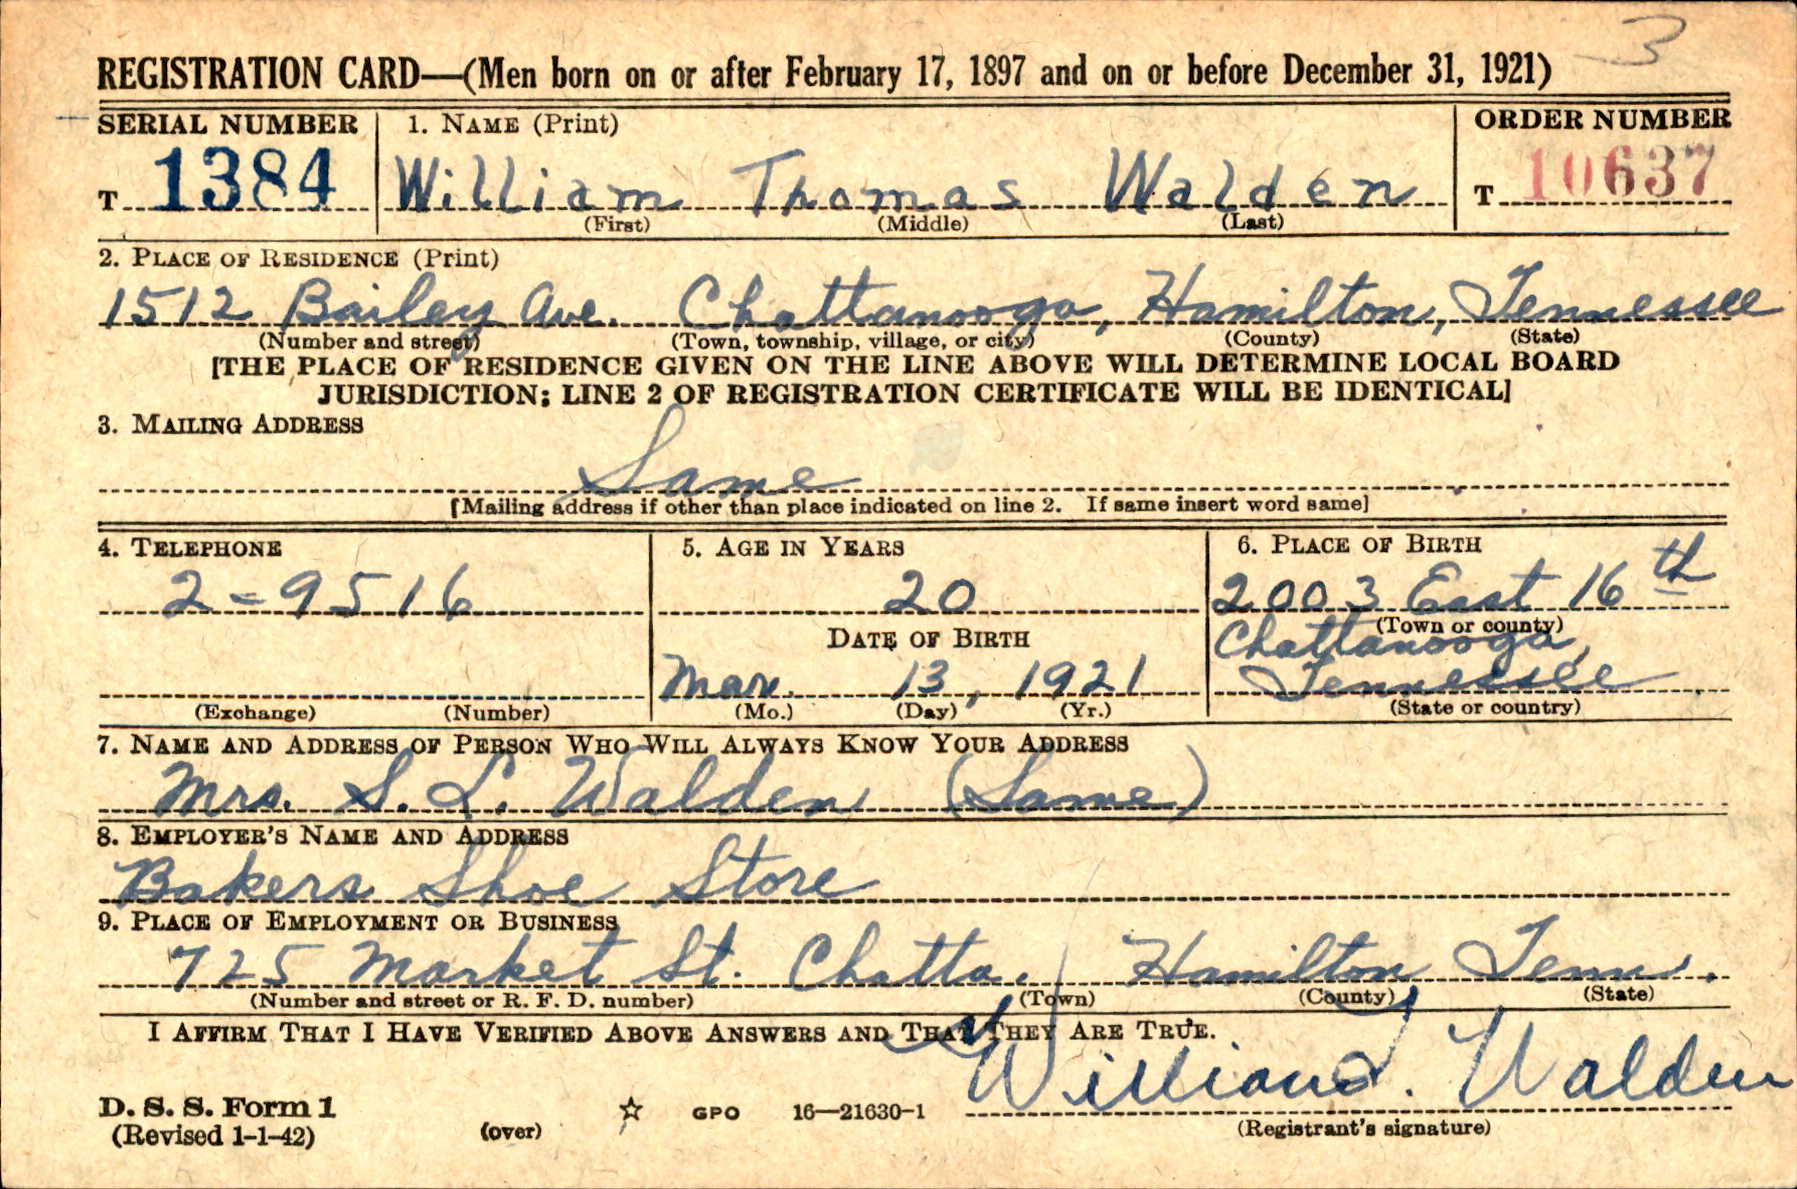 3
REGISTRATION CARD—(Men born on or after February 17, 1897 and on or before December 31, 1921)
SERIAL NUMBER 1. NAME (Print) ORDER NUMBER
T 1384 William Thomas Walden T 10637
(First) (Middle) (Last)
2. PLACE OF RESIDENCE (Print)
1512 Bailey Ave. Chattanooga, Hamilton, Tennessee
(Number and street) (Town, township, village, or city) (County) (State)
[THE PLACE OF RESIDENCE GIVEN ON THE LINE ABOVE WILL DETERMINE LOCAL BOARD
JURISDICTION; LINE 2 OF REGISTRATION CERTIFICATE WILL BE IDENTICAL]
3. MAILING ADDRESS
Same
[Mailing address if other than place indicated on line 2. If same insert word same]
4. TELEPHONE 5. AGE IN YEARS 6. PLACE OF BIRTH
2-9516 20 2003 East 16th
DATE OF BIRTH (Town or county)
Chattanooga,
Mar. 13, 1921 Tennessee
(Exchange) (Number) (Mo.) (Day) (Yr.) (State or country)
7. NAME AND ADDRESS OF PERSON WHO WILL ALWAYS KNOW YOUR ADDRESS
Mrs. S. L. Walden (Same)
8. EMPLOYER'S NAME AND ADDRESS
Bakers Shoe Store
9. PLACE OF EMPLOYMENT OR BUSINESS
725 Market St. Chatta. Hamilton Tenn.
(Number and street or R. F. D. number) (Town) (County) (State)
I AFFIRM THAT I HAVE VERIFIED ABOVE ANSWERS AND THAT THEY ARE TRUE.
William T. Walden
D. S. S. Form 1
(Revised 1-1-42) (over) GPO 16—21630-1 (Registrant's signature)